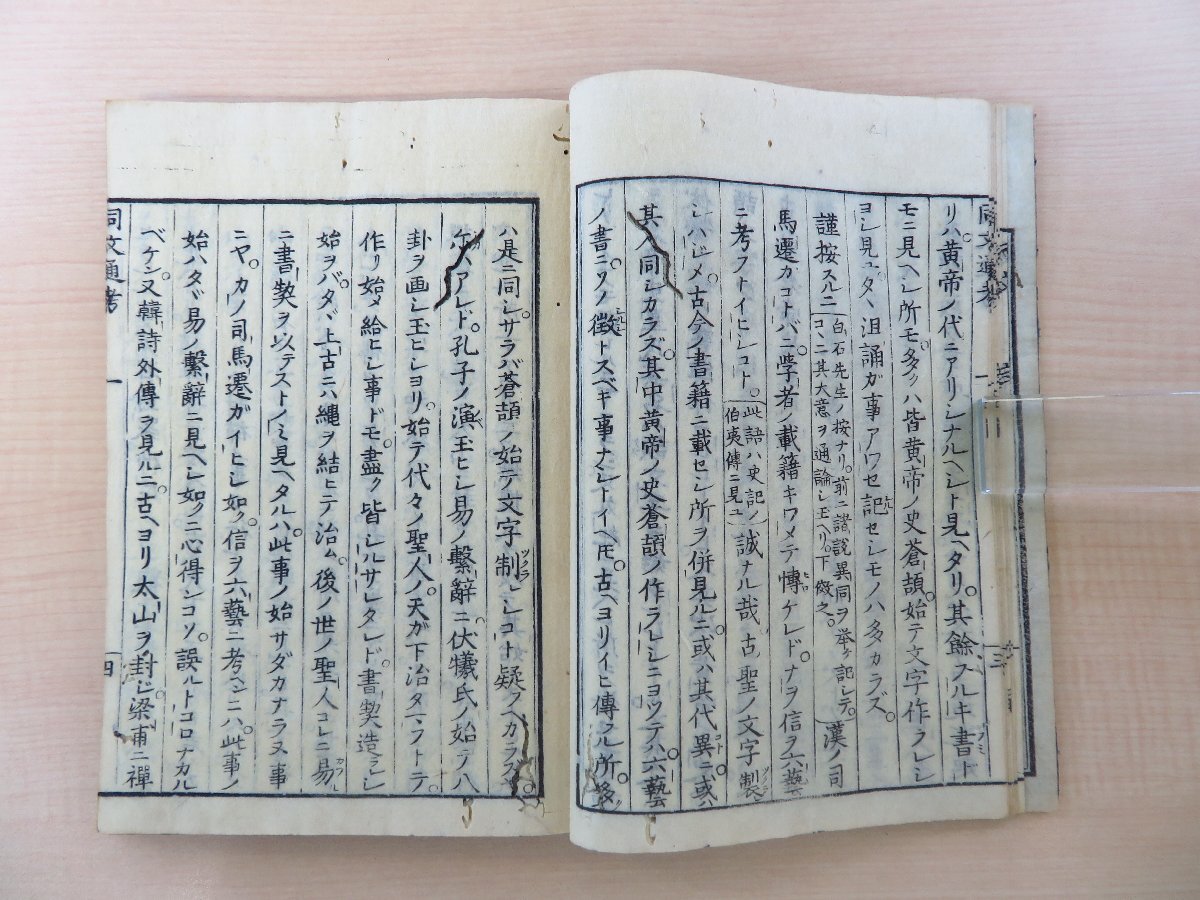 同文通考 一 三
リハ黄帝ノ代ニアリシナルヘシト見ヘタリ。其餘フルキ書ド
モニ見ヘシ所モ。多クハ皆黄帝ノ史蒼頡。始テ文字作ラレシ
ヨシ見ユ。沮誦ガ事アワセ記セシモノハ多カラズ。
謹按スルニ
白石先生ノ按ナリ。前ニ諸説異同ヲ挙ケ記シテ。
コヽニ其大意ヲ通論シ玉ヘリ。下倣之。
漢ノ司
馬遷カコトバニ学者ノ載籍キワメテ博ケレドナヲ信ヲ六藝
ニ考フトイヒシコト。
此語ハ史記ノ
伯夷傳ニ見ユ
誠ナル哉。古聖ノ文字製
シハジメ。古今ノ書籍ニ載セシ所ヲ併見ルニ或ハ其代異ニ或ハ
其人同シカラズ。其中黄帝ノ史蒼頡ノ作ラレシニヨツテハ。六藝
ノ書ニワノ徴トスベキ事ナシトイヘ𪜈。古ヘヨリイヒ傳フル所。多ク
ハ是ニ同シ。サラバ蒼頡ノ始テ文字制ラレシコト疑フヘカラズ。
ケハアレド。孔子ノ演玉ヒシ易ノ繫辭ニ伏犠氏ノ始テ八
卦ヲ画シ玉ヒシヨリ。始テ代々ノ聖人ノ。天ガ下治タマフトテ
作リ始メ給ヒシ事ドモ。盡ク皆シルサレタレド。書契造ラレシ
始ヲバ。タヾ上古ニハ縄ヲ結ヒテ治ム。後ノ世ノ聖人コレニ易
ニ書契ヲ以テストノミ見ヘタルハ。此事ノ始サダカナラヌ事
ニヤ。カノ司馬遷ガイヒシ如ク。信ヲ六藝ニ考ヘンニハ。此事ノ
始ハタヾ易ノ繫辭ニ見ヘシ如クニ心得ンコソ。誤ルトコロナカル
ベケレ。又韓詩外傳ヲ見ルニ。古ヘヨリ太山ヲ封ジ。梁甫ニ禪
同文通考 一 四